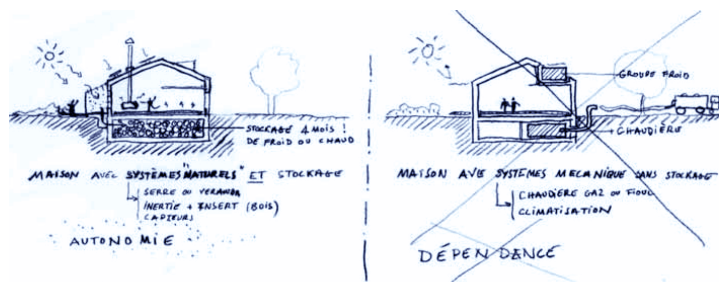 STOCKAGE 4 MOIS !
DE FROID OU CHAUD
MAISON AVEC SYSTÈMES "NATURELS" ET STOCKAGE
SERRE OU VERANDA
INERTIE + INSERT (BOIS)
CAPTEURS
AUTONOMIE
GROUPE FROID
CHAUDIÈRE
MAISON AVEC SYSTÈMES MECANIQUE SANS STOCKAGE
CHAUDIÈRE GAZ OU FIOUL
CLIMATISATION
DÉPENDANCE